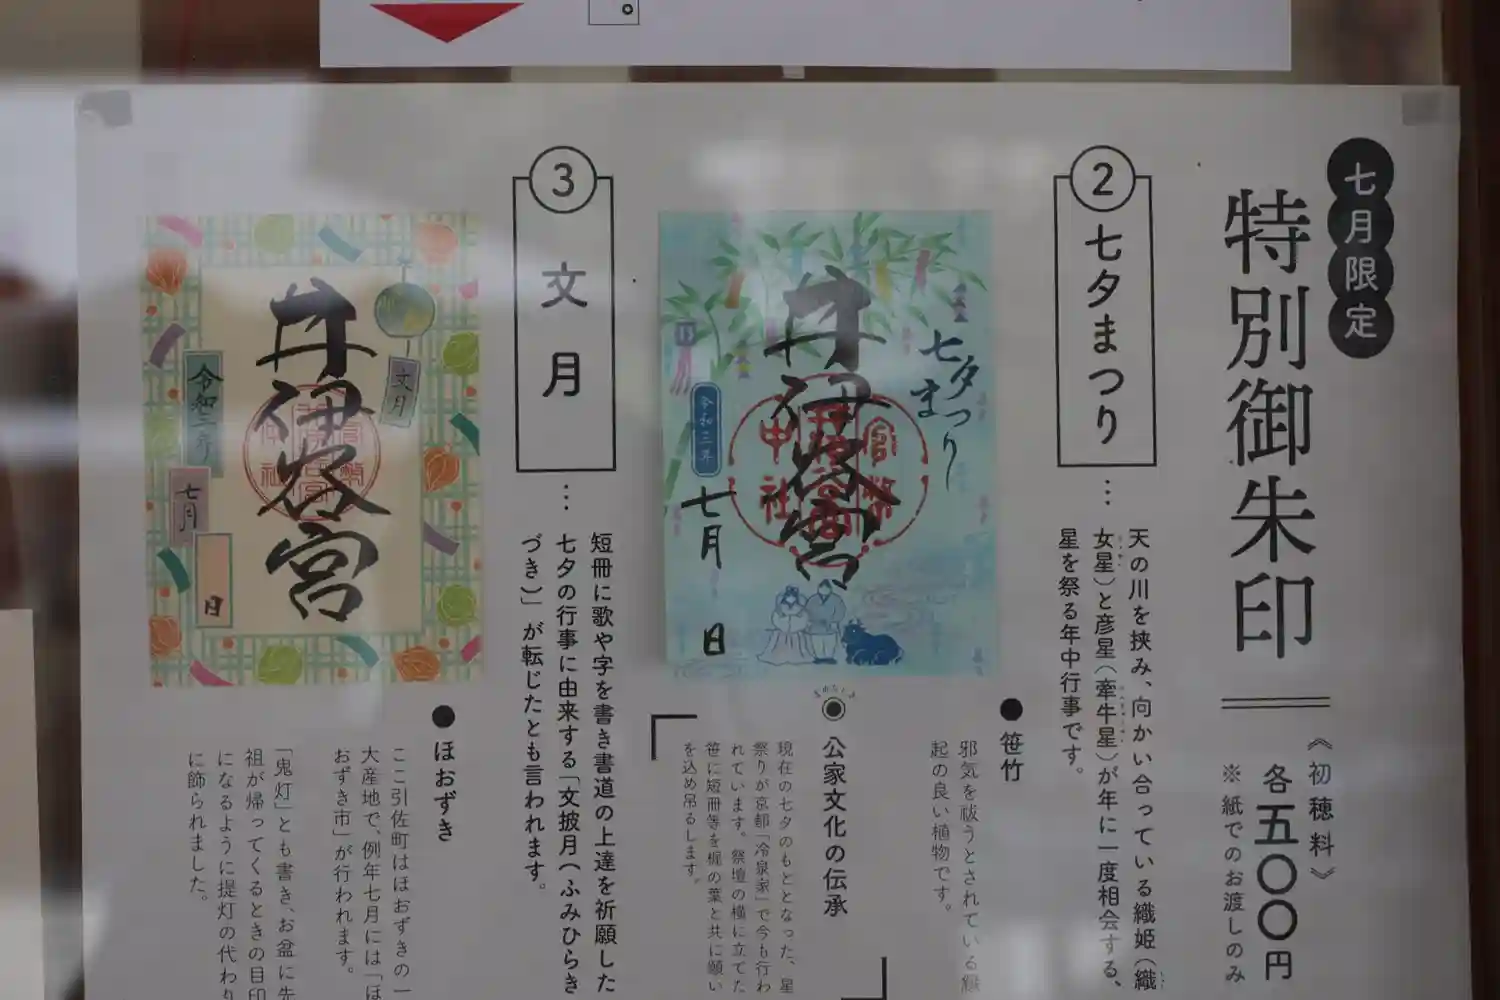 七月限定
特別御朱印
《初穂料》
各五〇〇円
※紙でのお渡しのみ
②七夕まつり
…
天の川を挟み、向かい合っている織姫（織
女星）と彦星（牽牛星）が年に一度相会する、
星を祭る年中行事です。
井伊谷宮
七夕
まつり
令和三年
七月
日
官幣
中社
●笹竹
邪気を祓うとされている縁
起の良い植物です。
公家文化の伝承
現在の七夕のもととなった、星
祭りが京都「冷泉家」で今も行わ
れています。祭壇の横に立てた
笹に短冊等を梶の葉と共に願い
を込め吊るします。
③文月
…
短冊に歌や字を書き書道の上達を祈願した
七夕の行事に由来する「文披月（ふみひらき
づき）」が転じたとも言われます。
井伊谷宮
文月
令和三年
七月
日
●ほおずき
ここ引佐町はほおずきの一
大産地で、例年七月には「ほ
おずき市」が行われます。
「鬼灯」とも書き、お盆に先
祖が帰ってくるときの目印
になるように提灯の代わり
に飾られました。